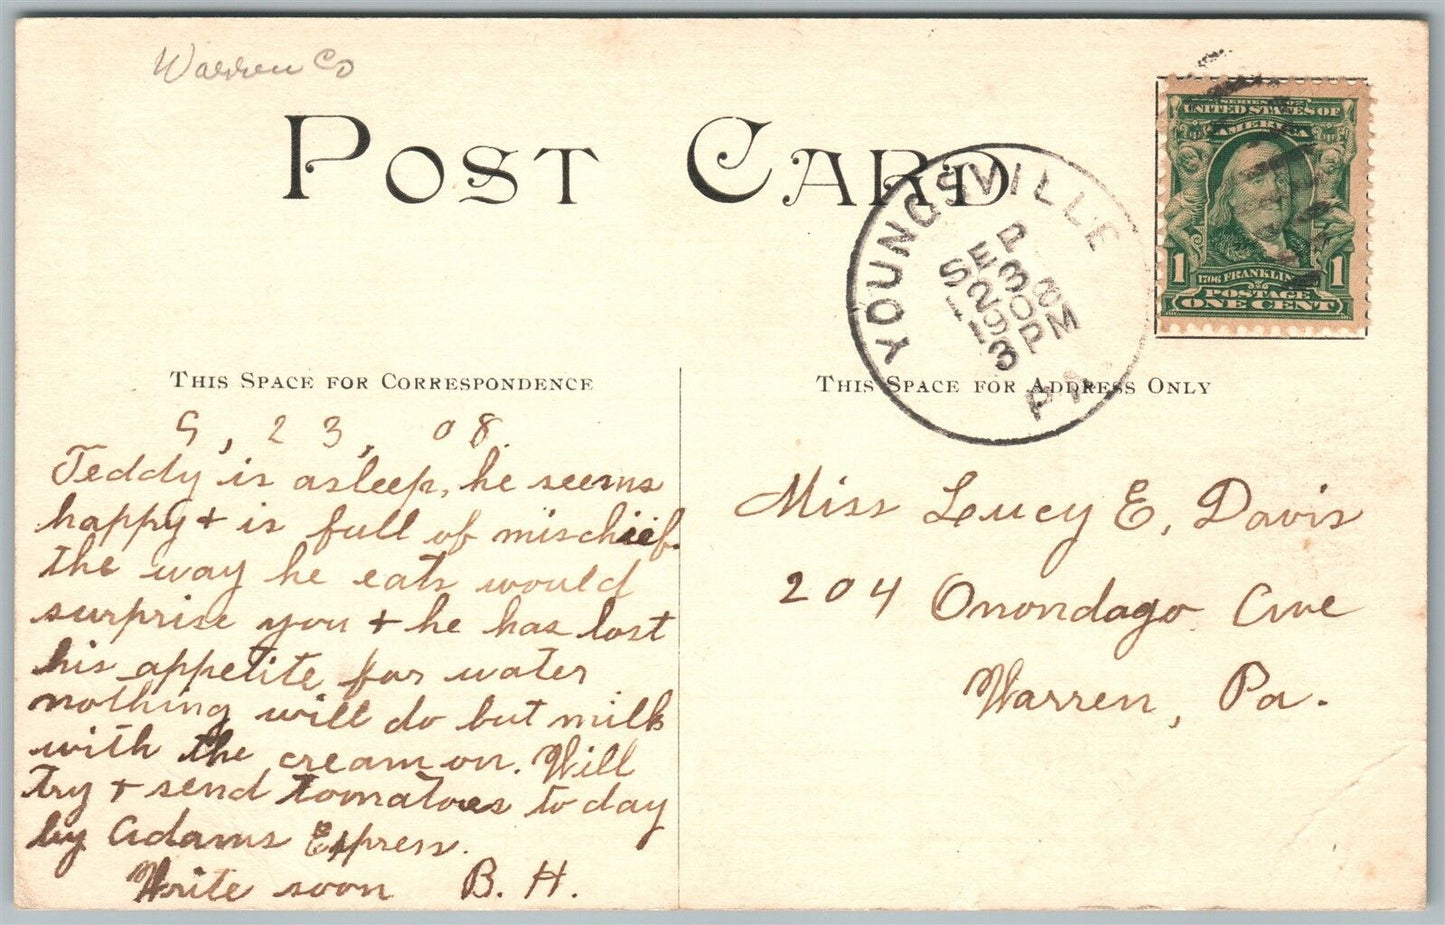 Warren Co
POST CARD
YOUNGSVILLE
PA.
SEP
23
3 PM
SERIES 1902
UNITED STATES OF
AMERICA
1 1
1706 FRANKLIN
POSTAGE
ONE CENT
THIS SPACE FOR CORRESPONDENCE
9, 23, 08.
Teddy is asleep, he seems
happy + is full of mischief.
the way he eats would
surprise you + he has lost
his appetite for water
nothing will do but milk
with the cream on. Will
try + send tomatoes to day
by Adams Express.
Write soon B. H.
THIS SPACE FOR ADDRESS ONLY
Miss Lucy E, Davis
204 Onondago Ave
Warren, Pa.